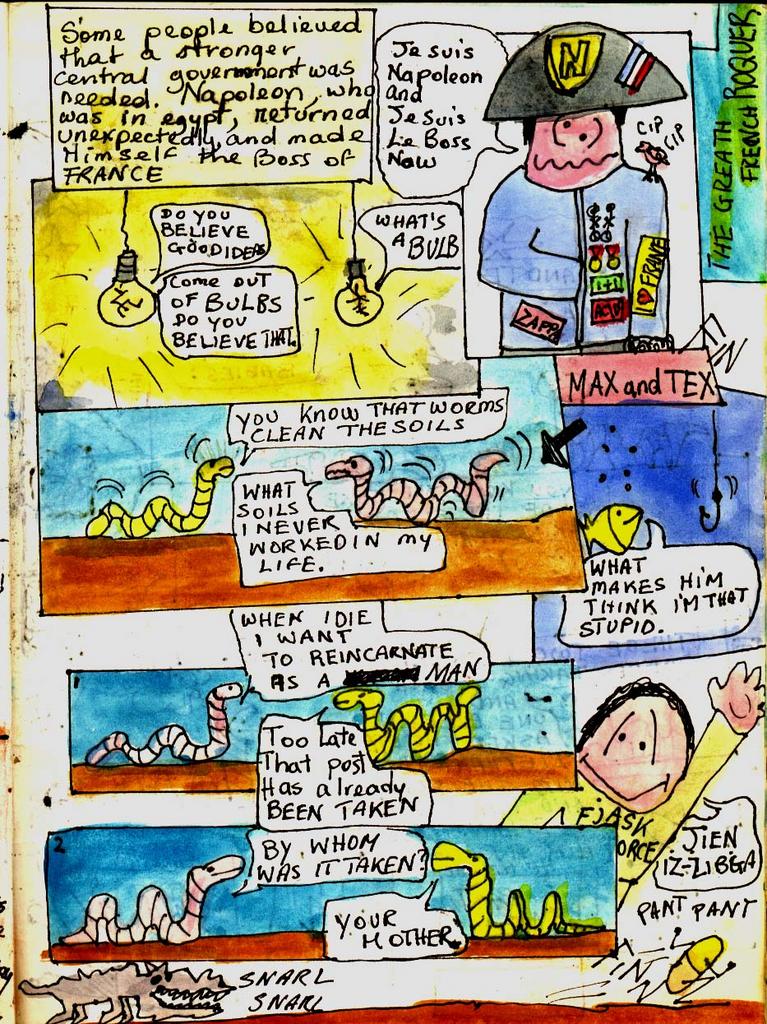 Some people believed
that a stronger
central government was
needed. Napoleon, who
was in egypt, returned
unexpectedly, and made
Himself the Boss of
FRANCE
Je suis
Napoleon
and
Je suis
Le Boss
Now
N
CIP
CIP
I ♥ FRANCE
ZAPP
THE GREATH
FRENCH ROQUER
DO YOU
BELIEVE
GOOD IDEAS
COME OUT
OF BULBS
DO YOU
BELIEVE THAT.
WHAT'S
A BULB
MAX and TEX
YOU KNOW THAT WORMS
CLEAN THE SOILS
WHAT
SOILS
I NEVER
WORKED IN my
LIFE.
WHAT
MAKES HIM
THINK I'M THAT
STUPID.
1
WHEN I DIE
I WANT
TO REINCARNATE
AS A MAN
Too Late
That post
Has already
BEEN TAKEN
2
BY WHOM
WAS IT TAKEN?
YOUR
MOTHER.
FJASK
ORCE
JIEN
IZ-ZIBGA
PANT PANT
SNARL
SNARL